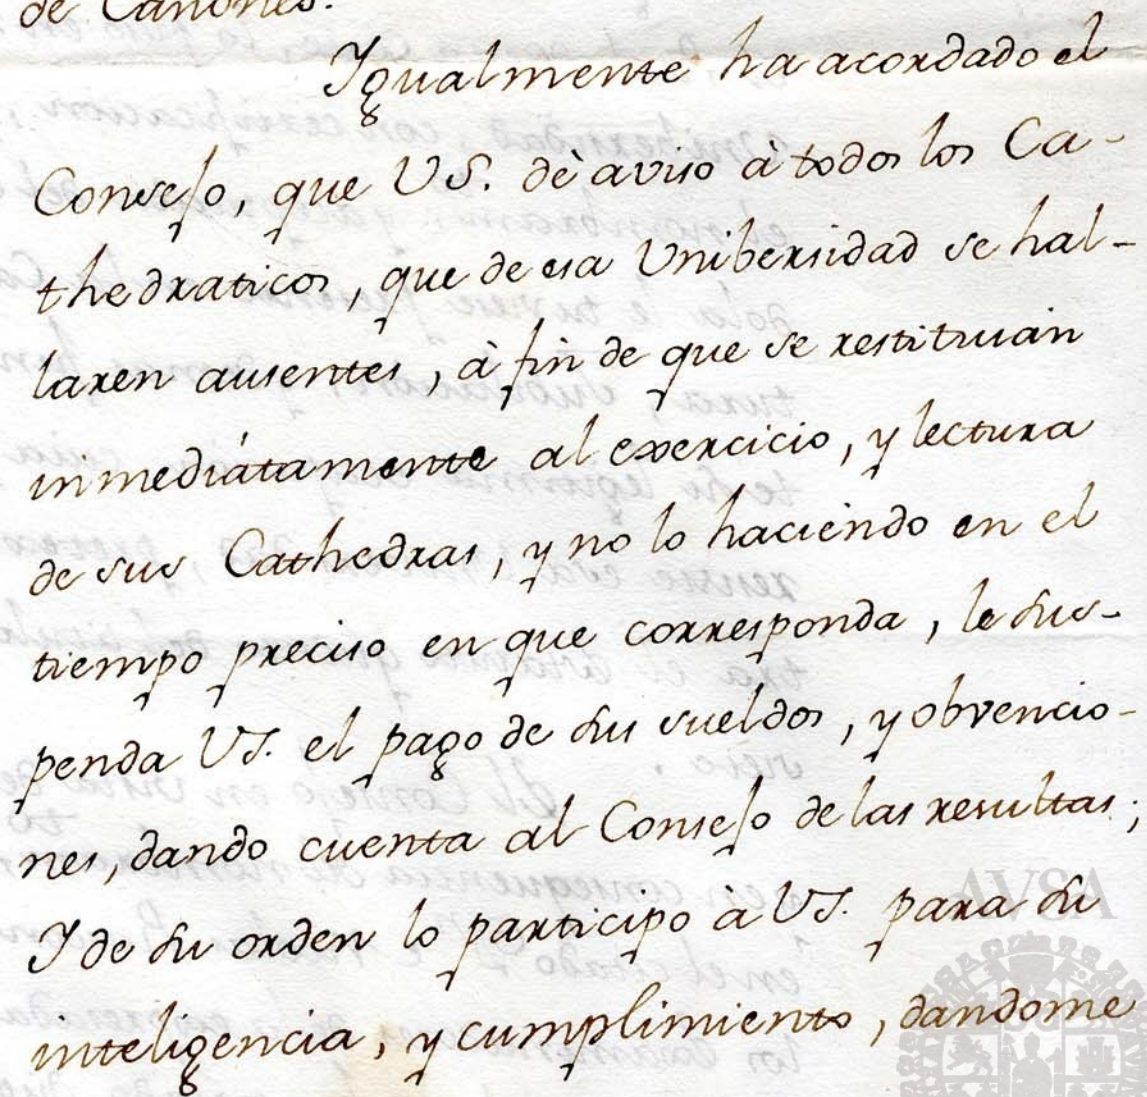 de Canones.
Igualmente ha acordado el
Consejo, que VS. dè aviso à todos los Ca-
thedraticos, que de esa Unibersidad se hal-
laren ausentes, à fin de que se restituian
inmediátamente al exercicio, y lectura
de sus Cathedras, y no lo haciendo en el
tiempo preciso en que corresponda, le sus-
penda VS. el pago de sus sueldos, y obvencio-
nes, dando cuenta al Consejo de las resultas;
Y de su orden lo participo à VS. para su
inteligencia, y cumplimiento, dandome
AVSA